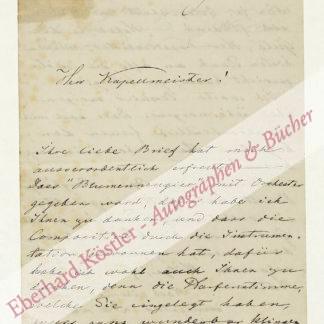 Herr Kapellmeister!
Ihre liebe Brief hat mich
ausserordentlich erfreut
Dass Blumenengier mit Orchester
gegeben ward, dafür habe ich
Ihnen zu danken, und dass die
Composition durch die Instrumen-
tation gewonnen hat, dafür
habe ich wohl auch Ihnen zu
danken, denn die Harfenstimme,
welche Sie eingelegt haben,
muss ganz wunderbar klingen
Eberhard Köstler - Autographen & Bücher